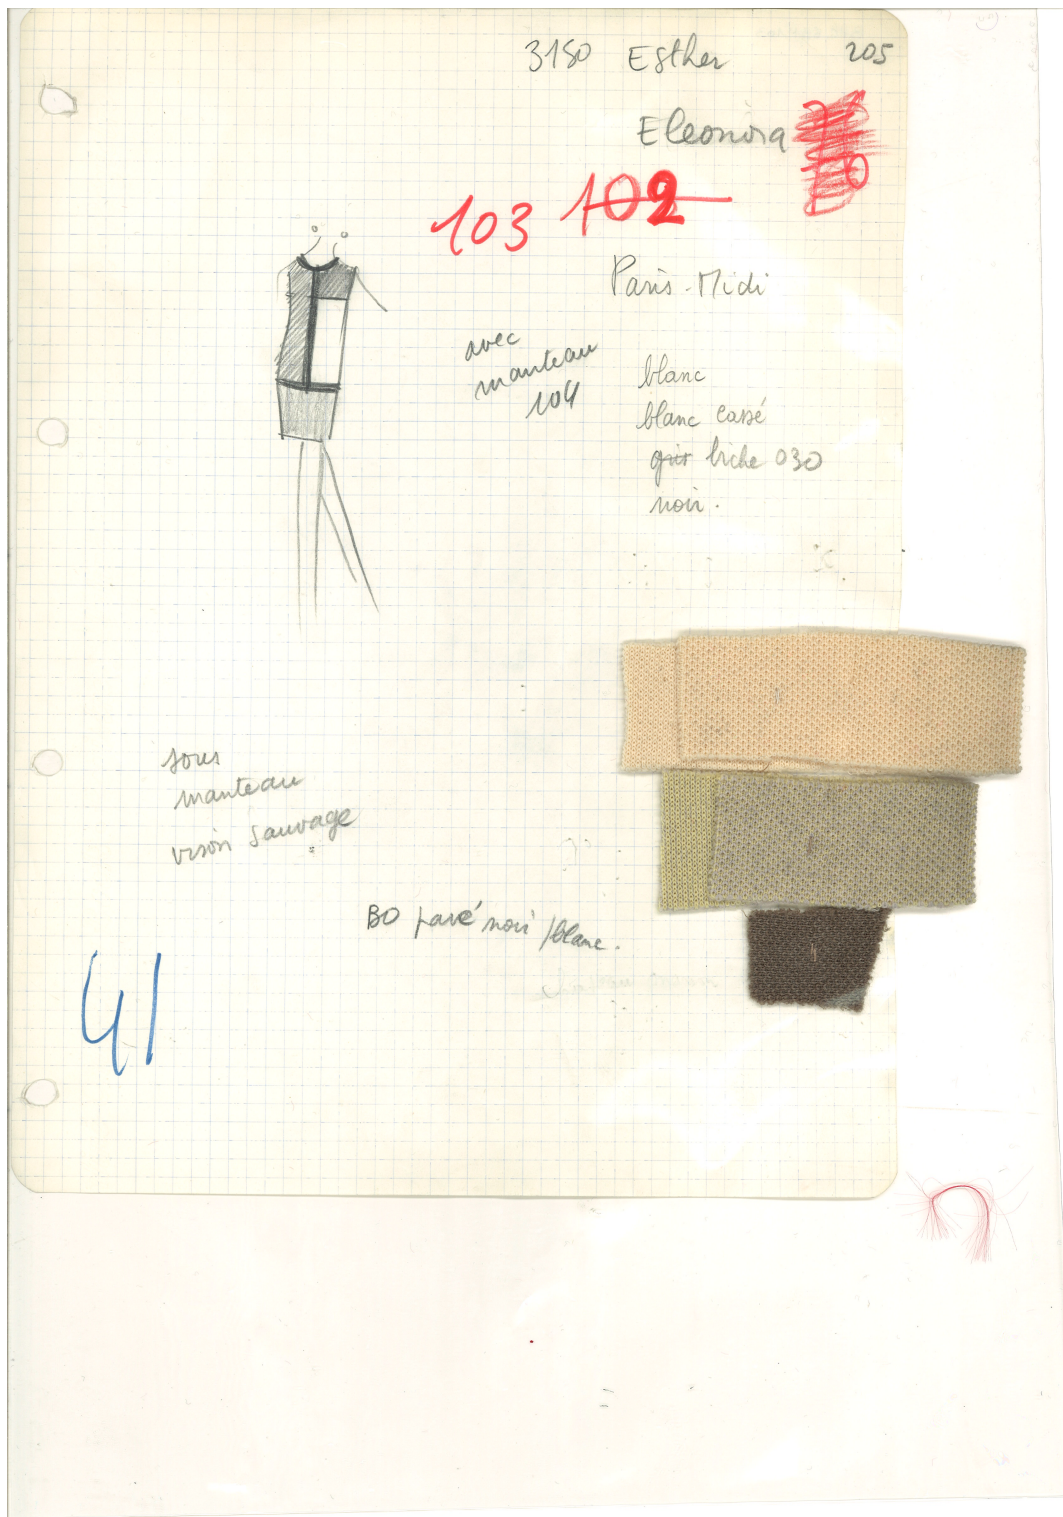 3150 Esther 205
Eleonora
103 102
Paris-Midi
avec
manteau
104
blanc
blanc cassé
gris biche 030
noir.
sous
manteau
vison sauvage
BO pavé noir/blanc.
41